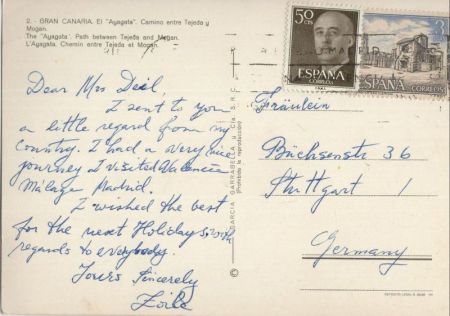 2 - GRAN CANARIA. El "Ayagata". Camino entre Tejeda y
Mogan.
The "Ayagata". Path between Tejeda and Mogan.
L'Ayagata. Chemin entre Tejeda et Mogan.
Dear Mrs
I sent to you
a little regard from my
country. I had a very nice
journey I visited Valencia
Málaga Madrid.
I wished the best
for the next Holiday
regards to everybody.
Yours Sincerely
GARCIA GARRABELLA y Cía. S.R.C.
(Prohibida la reproducción)
50
CTS
ESPAÑA
CORREOS
3
ESPAÑA
CORREOS
Fräulein
Büchsenstr 36
Stuttgart 1
Germany